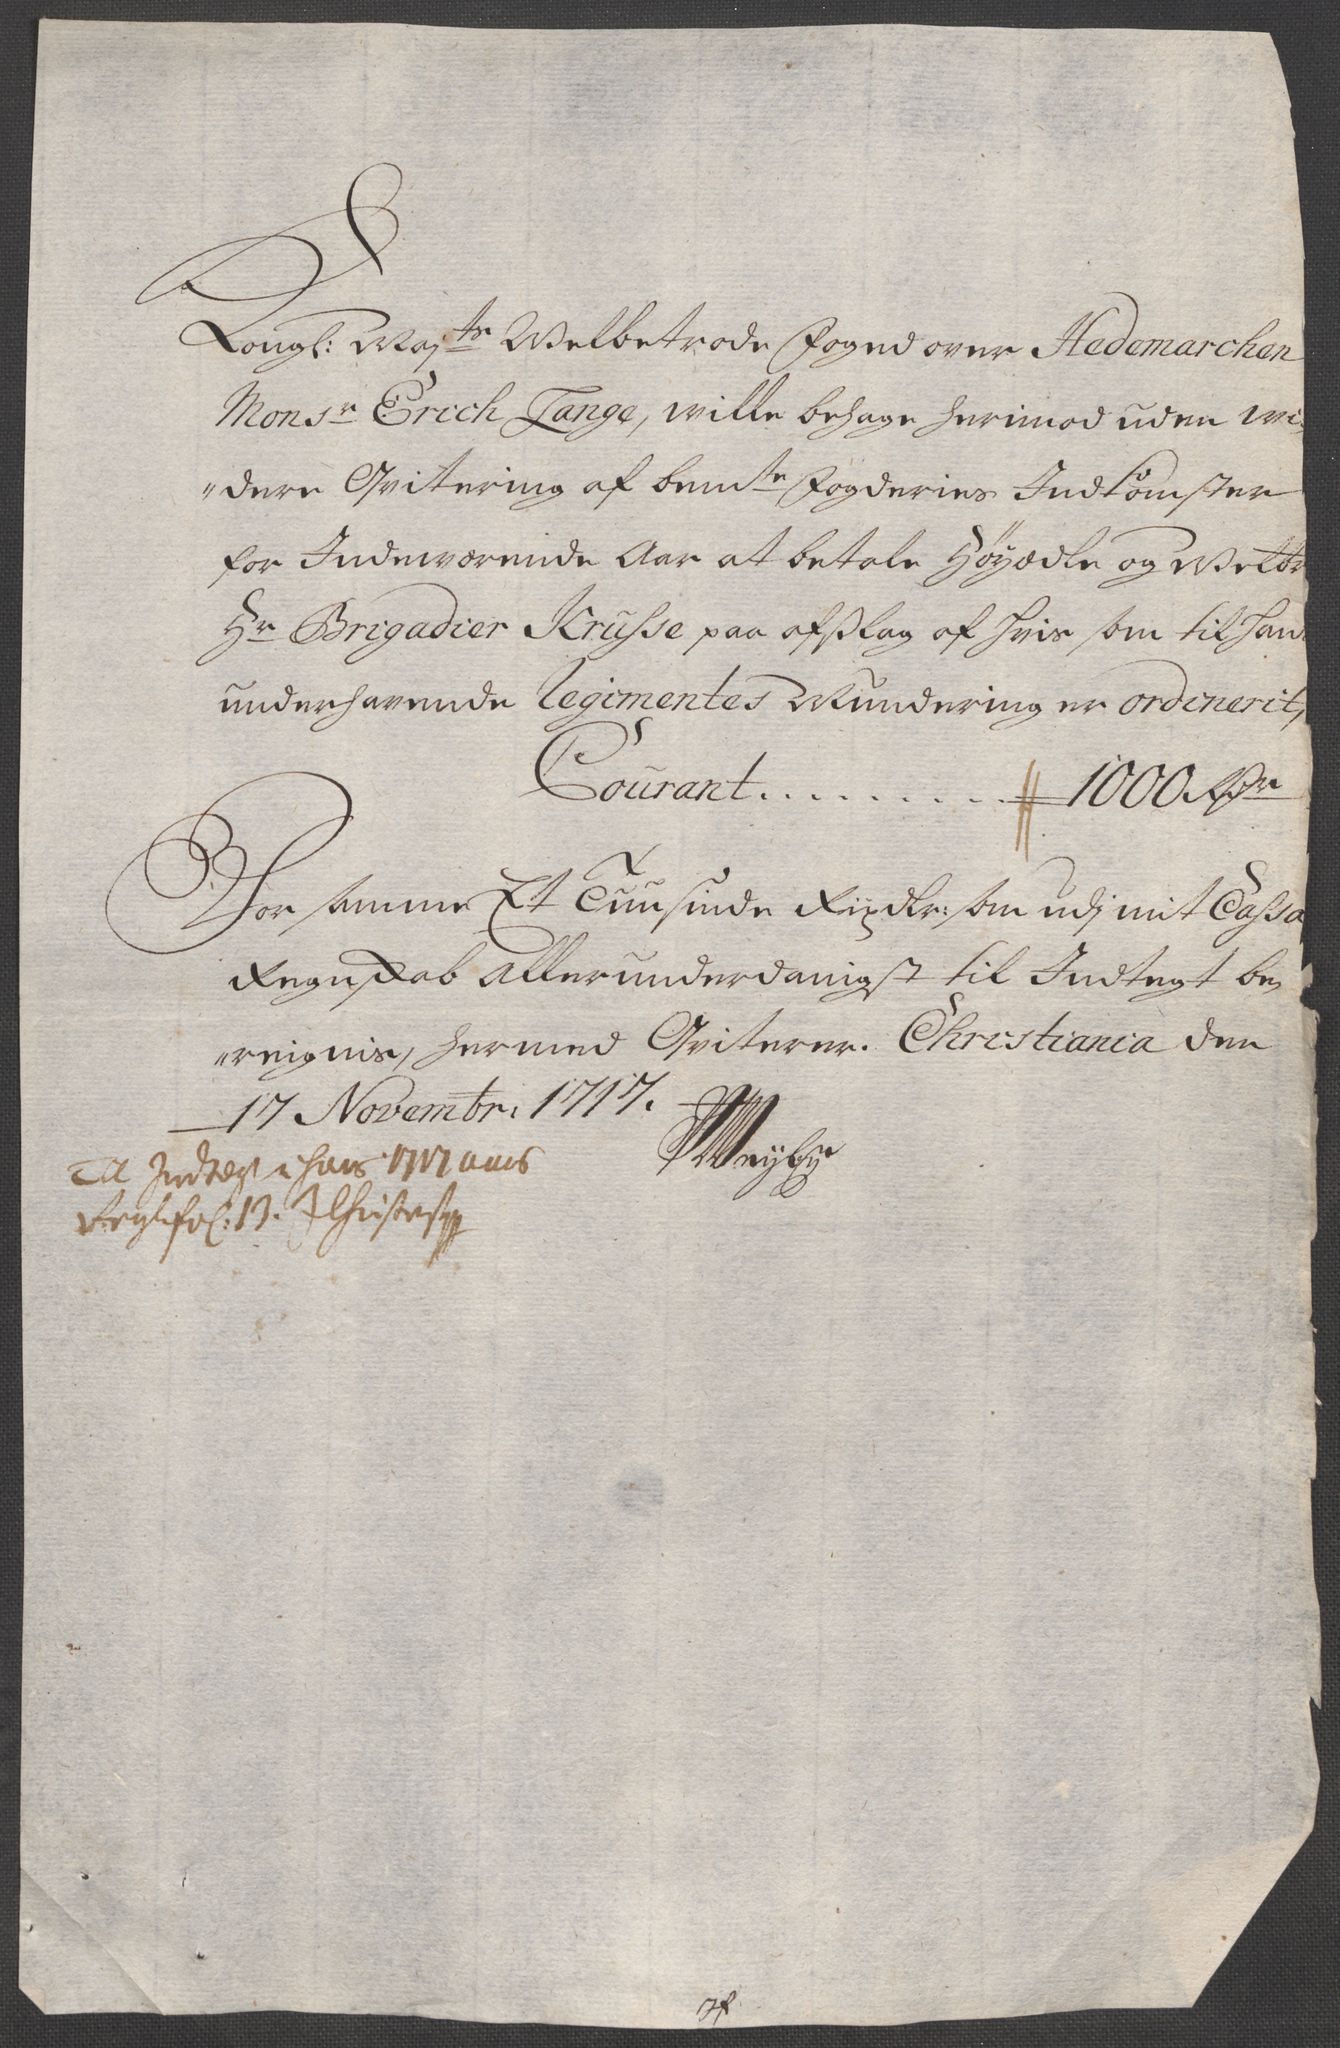 Kongl: Maj:ts Welbetrode Foged over Hedemarchen
Monsr Erich Lange, wille behage herimod uden wi-
"dere Qvitering af bemte Fogderies Indkomster
for Indeværende Aar at betale Høyædle og Welb:
Hr Brigadier Krusse paa afslag af hvis som til hans
underhavende Regimentes Mundering er ordinerit,
Courant......... 1000 Rdr
For samme Et Tuusinde Rixdlr: som udj mit Cassa
Regnskab Allerunderdanigst til Indtegt be-
"reignis, hermed Qviterer. Christiania den
17 Novembr: 1717.
Meyby
Til Indtegt i hans 1717 aars
Regl: fol: 13.